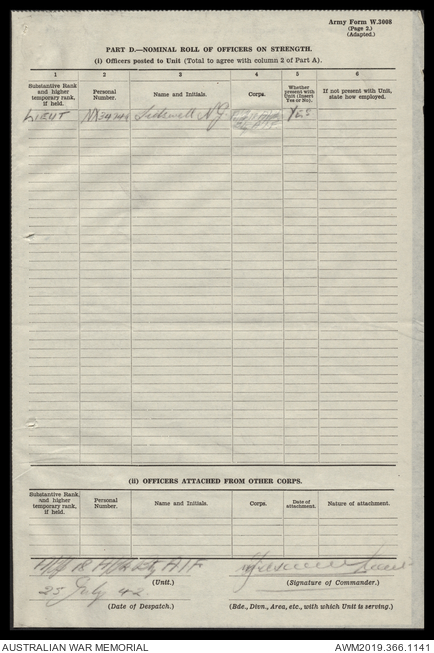 Army Form W.3008
(Page 2.)
(Adapted.)
PART D.—NOMINAL ROLL OF OFFICERS ON STRENGTH.
(i) Officers posted to Unit (Total to agree with column 2 of Part A).
1 2 3 4 5 6
Substantive Rank and higher temporary rank, if held. Personal Number. Name and Initials. Corps. Whether present with Unit (Insert Yes or No). If not present with Unit, state how employed.
LIEUT N.G. YES
(ii) OFFICERS ATTACHED FROM OTHER CORPS.
Substantive Rank and higher temporary rank, if held. Personal Number. Name and Initials. Corps. Date of attachment. Nature of attachment.
AIF Lieut
(Unit.) (Signature of Commander.)
25 July 42
(Date of Despatch.) (Bde., Divn., Area, etc., with which Unit is serving.)
AUSTRALIAN WAR MEMORIAL AWM2019.366.1141